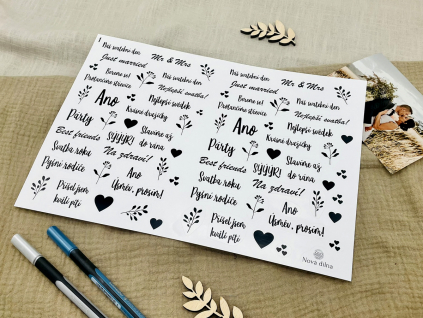 1
Náš svatební den
Mr & Mrs
Just married
Bereme se!
Náš svatební den
Protančíme střevíce
Nejlepší svatba!
Ano
Nejlepší svědek
Krásné družičky
Párty
Slavíme až
do rána
Best friends
SYYYR!
Svatba roku
Na zdraví!
Pyšní rodiče
Ano
Úsměv, prosím!
Přišel jsem
kvůli pití
Náš svatební den
Mr & Mrs
Just married
Bereme se!
Náš svatební den
Protančíme střevíce
Nejlepší svatba!
Ano
Nejlepší svědek
Krásné družičky
Párty
Slavíme až
do rána
Best friends
SYYYR!
Svatba roku
Na zdraví!
Pyšní rodiče
Ano
Úsměv, prosím!
Přišel jsem
kvůli pití
Nová dílna